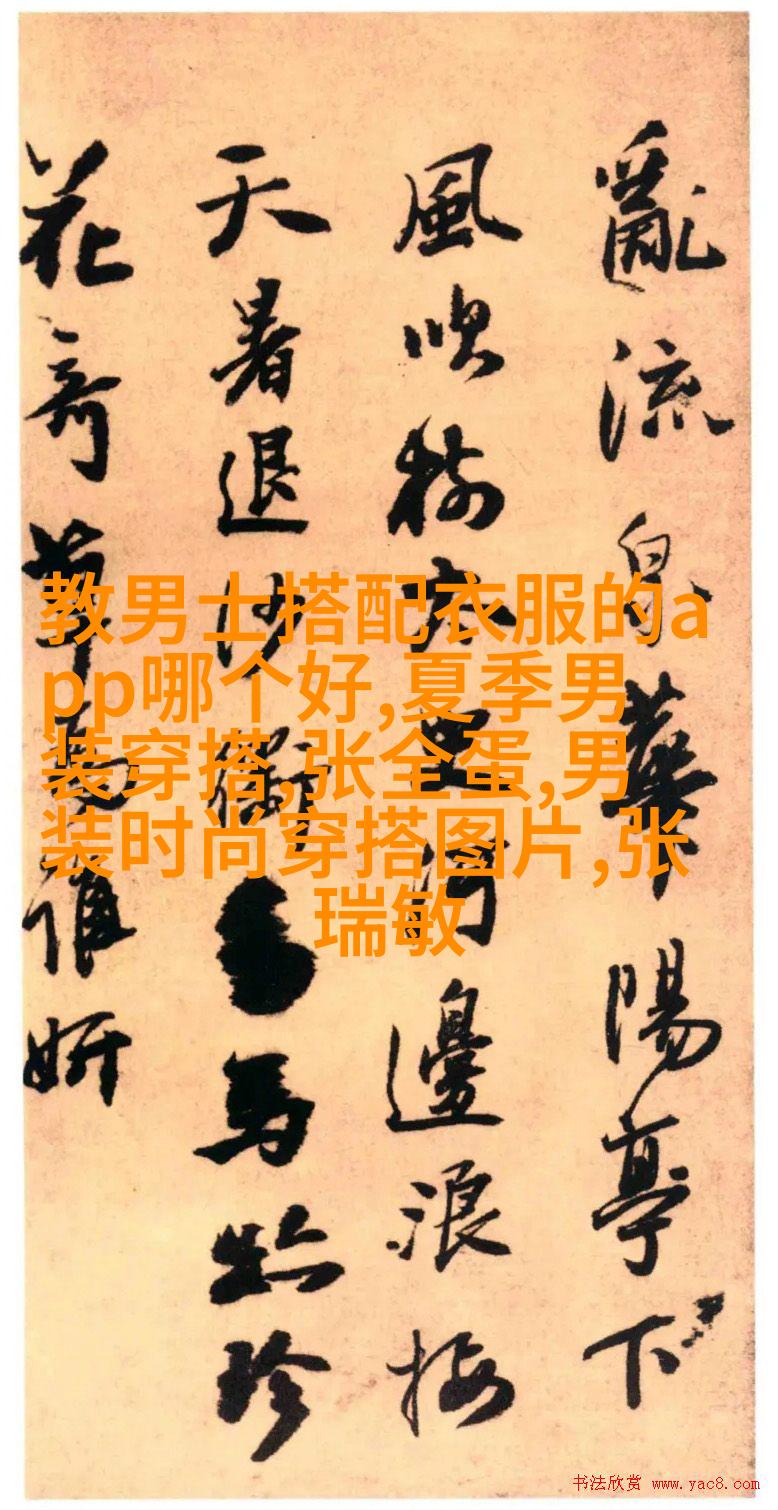 亂流泉華陽亭下
風吹河邊浪接
天暑退沙馬珍
花奇草為誰妍
教男士搭配衣服的a
pp哪个好,夏季男
装穿搭,张全蛋,男
装时尚穿搭图片,张
瑞敏
书法欣赏 www.yac8.com